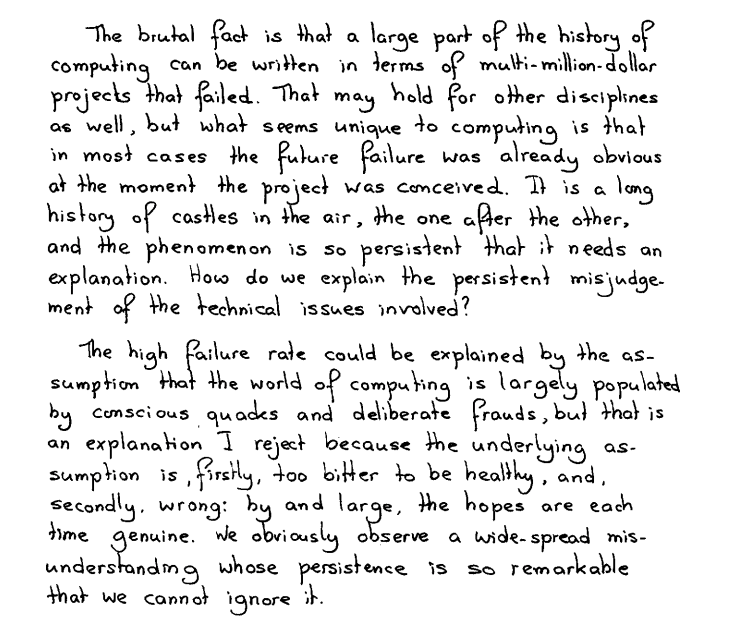 The brutal fact is that a large part of the history of
computing can be written in terms of multi-million-dollar
projects that failed. That may hold for other disciplines
as well, but what seems unique to computing is that
in most cases the future failure was already obvious
at the moment the project was conceived. It is a long
history of castles in the air, the one after the other,
and the phenomenon is so persistent that it needs an
explanation. How do we explain the persistent misjudge-
ment of the technical issues involved?
The high failure rate could be explained by the as-
sumption that the world of computing is largely populated
by conscious quacks and deliberate frauds, but that is
an explanation I reject because the underlying as-
sumption is, firstly, too bitter to be healthy, and,
secondly, wrong: by and large, the hopes are each
time genuine. We obviously observe a wide-spread mis-
understanding whose persistence is so remarkable
that we cannot ignore it.